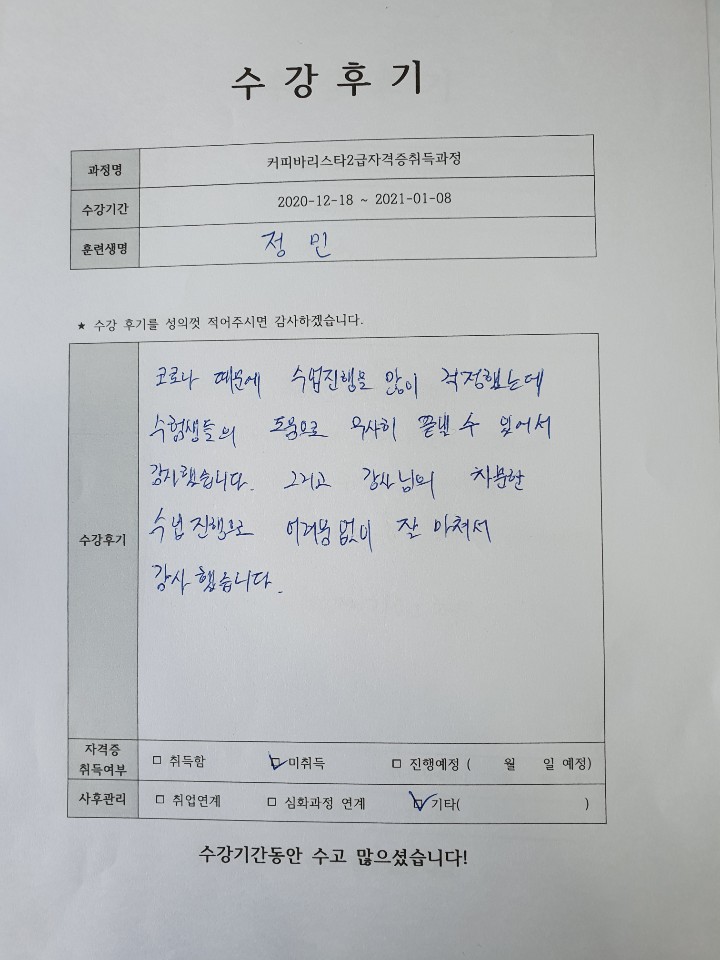 수강후기
과정명 커피바리스타2급자격증취득과정
수강기간 2020-12-18 ~ 2021-01-08
훈련생명 정 민
★ 수강 후기를 성의껏 적어주시면 감사하겠습니다.
수강후기
코로나 때문에 수업진행을 많이 걱정했는데
수험생들의 도움으로 무사히 끝낼 수 있어서
감사했습니다. 그리고 강사님의 차분한
수업 진행으로 어려움없이 잘 마쳐서
감사했습니다.
자격증 취득여부 □ 취득함 ☑ 미취득 □ 진행예정 ( 월 일 예정)
사후관리 □ 취업연계 □ 심화과정 연계 ☑ 기타( )
수강기간동안 수고 많으셨습니다!